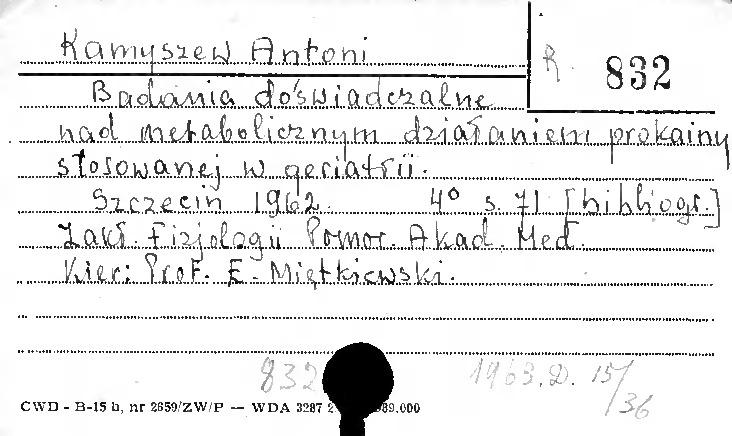 Kamyszew Antoni
R 832
Badania doświadczalne
nad metabolicznym działaniem prokainy
stosowanej w geriatrii.
Szczecin 1962. 4° s. 71 [bibliogr.]
Zakł. Fizjologii Pomor. Akad. Med.
Kier: Prof. E. Miętkiewski.
832 1963. D. 15/36
CWD - B-15 b, nr 2659/ZW/P — WDA 3287 989.000